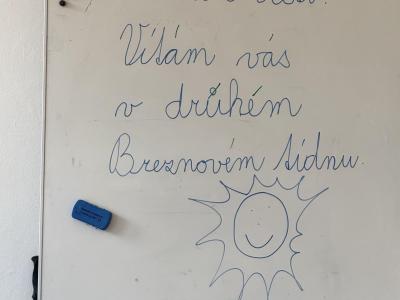 Vítám vás
v drůhém
Breznovém tídnu.